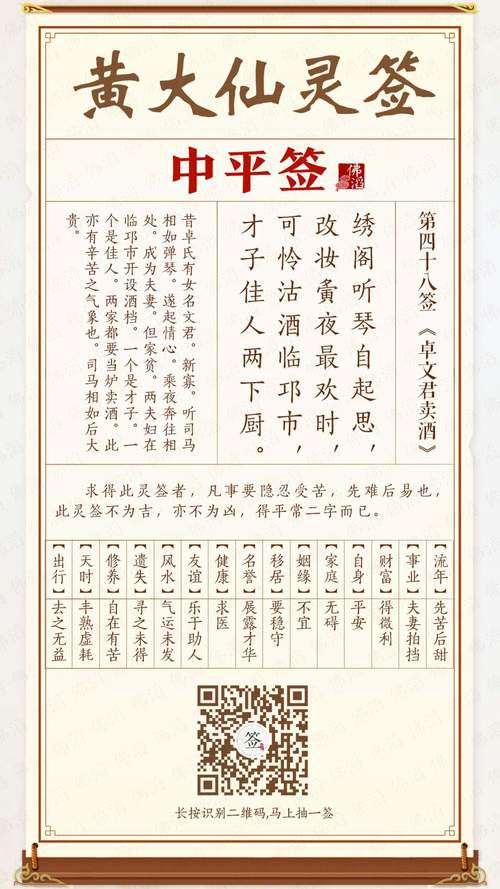 黄大仙灵签
中平签
佛滔
第四十八签 《卓文君卖酒》
绣阁听琴自起思,
改妆夤夜最欢时,
可怜沽酒临邛市,
才子佳人两下厨。
昔卓氏有女名文君。新寡。听司马
相如弹琴。遂起情心。乘夜奔往相
处。成为夫妻。但家贫。两夫妇在
临邛市开设酒档。一个是才子。一
个是佳人。两家都要当炉卖酒。此
亦有辛苦之气象也。司马相如后大
贵。
求得此灵签者，凡事要隐忍受苦，先难后易也，
此灵签不为吉，亦不为凶，得平常二字而已。
【流年】先苦后甜
【事业】夫妻拍挡
【财富】得微利
【自身】平安
【家庭】无碍
【姻缘】不宜
【移居】要稳守
【名誉】展露才华
【健康】求医
【友谊】乐于助人
【风水】气运未发
【遗失】寻之未得
【修养】自在有苦
【天时】丰熟虚耗
【出行】去之无益
签
长按识别二维码,马上抽一签